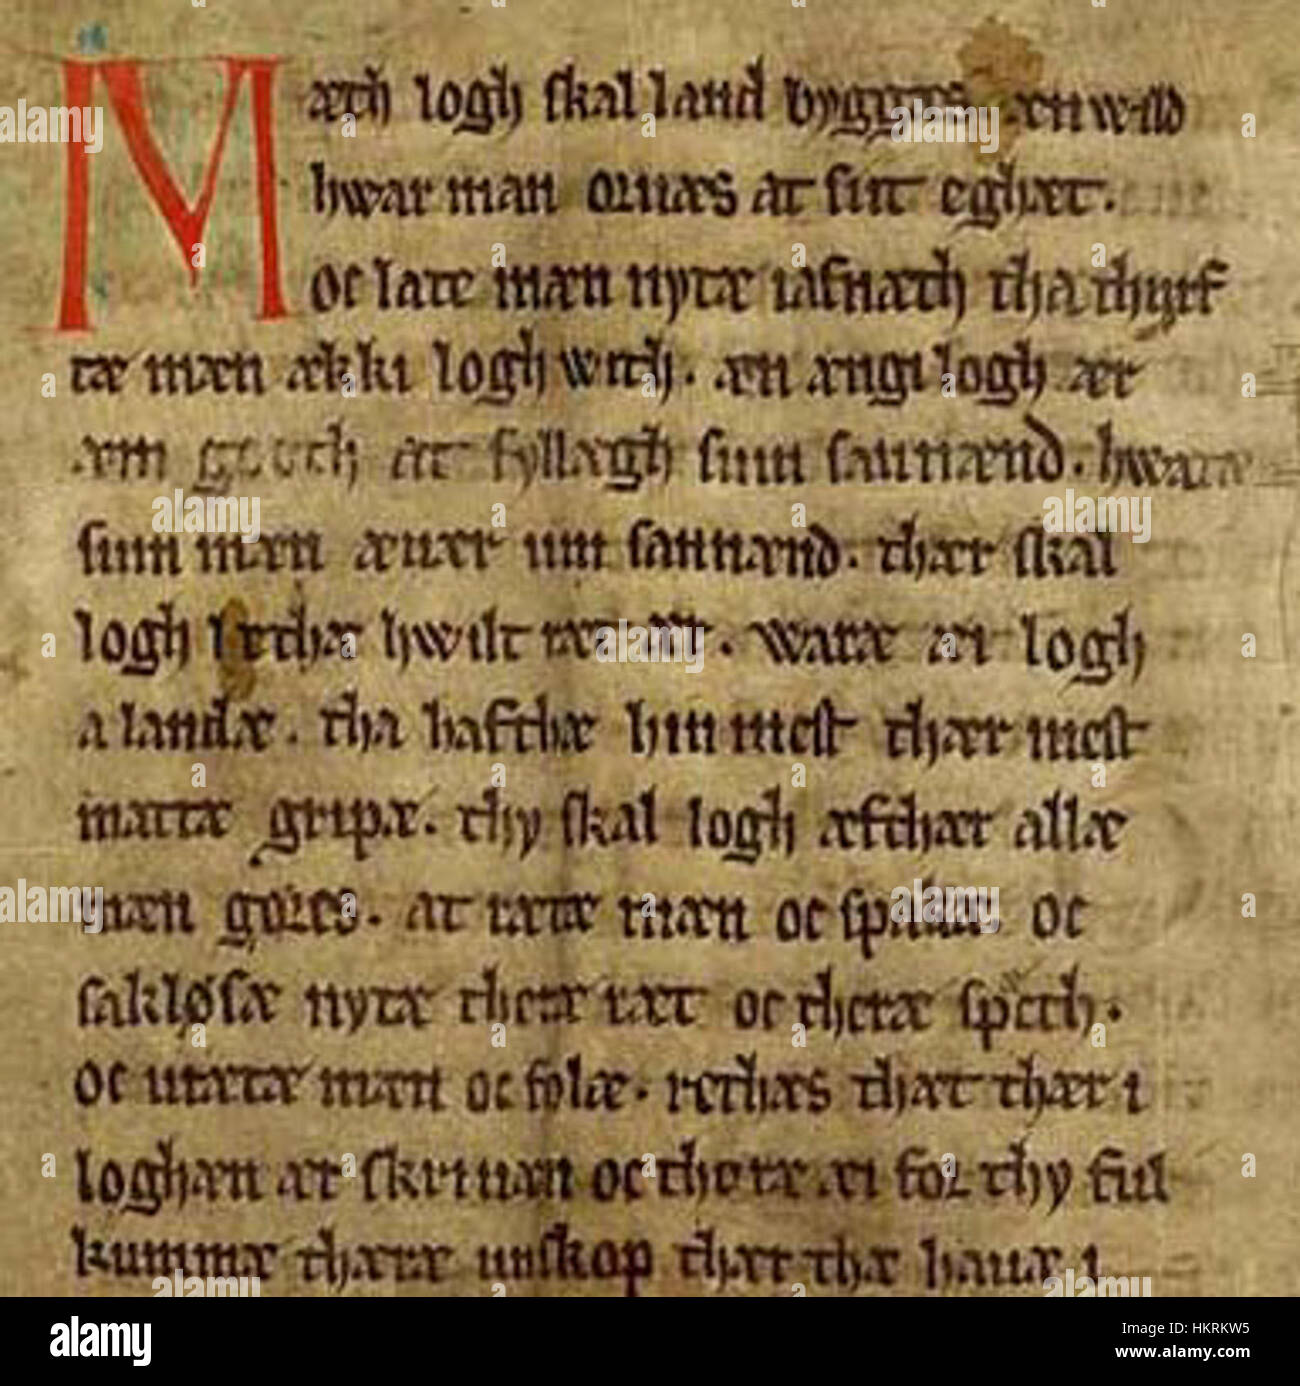 Mæth logh skal land byggæs æn wild
hwar man oruæs at sitt eghæt.
oc late mæn nytæ iafnæth tha thyrf
tæ mæn ækki logh with. æn ængi logh ær
æm gooth at fyllægh sum sannænd. hwaræ
sum mæn æuær um sannænd. thær skal
logh lethæ hwilt ræt ær. waræ æi logh
a landæ. tha hafthæ hin mest thær mest
mattæ gripæ. thy skal logh æfthær allæ
mæn gøres. at rætæ mæn oc spakæ oc
sakløsæ nytæ theræ ræt oc theræ spæcth.
oc urætæ mæn oc folæ. rethæs thæt thær i
loghæn ær skriuæn oc thoræ æi for thy ful
kummæ thæræ unskop thær the hauæ i
alamy
Image ID: HKRKW5
www.alamy.com